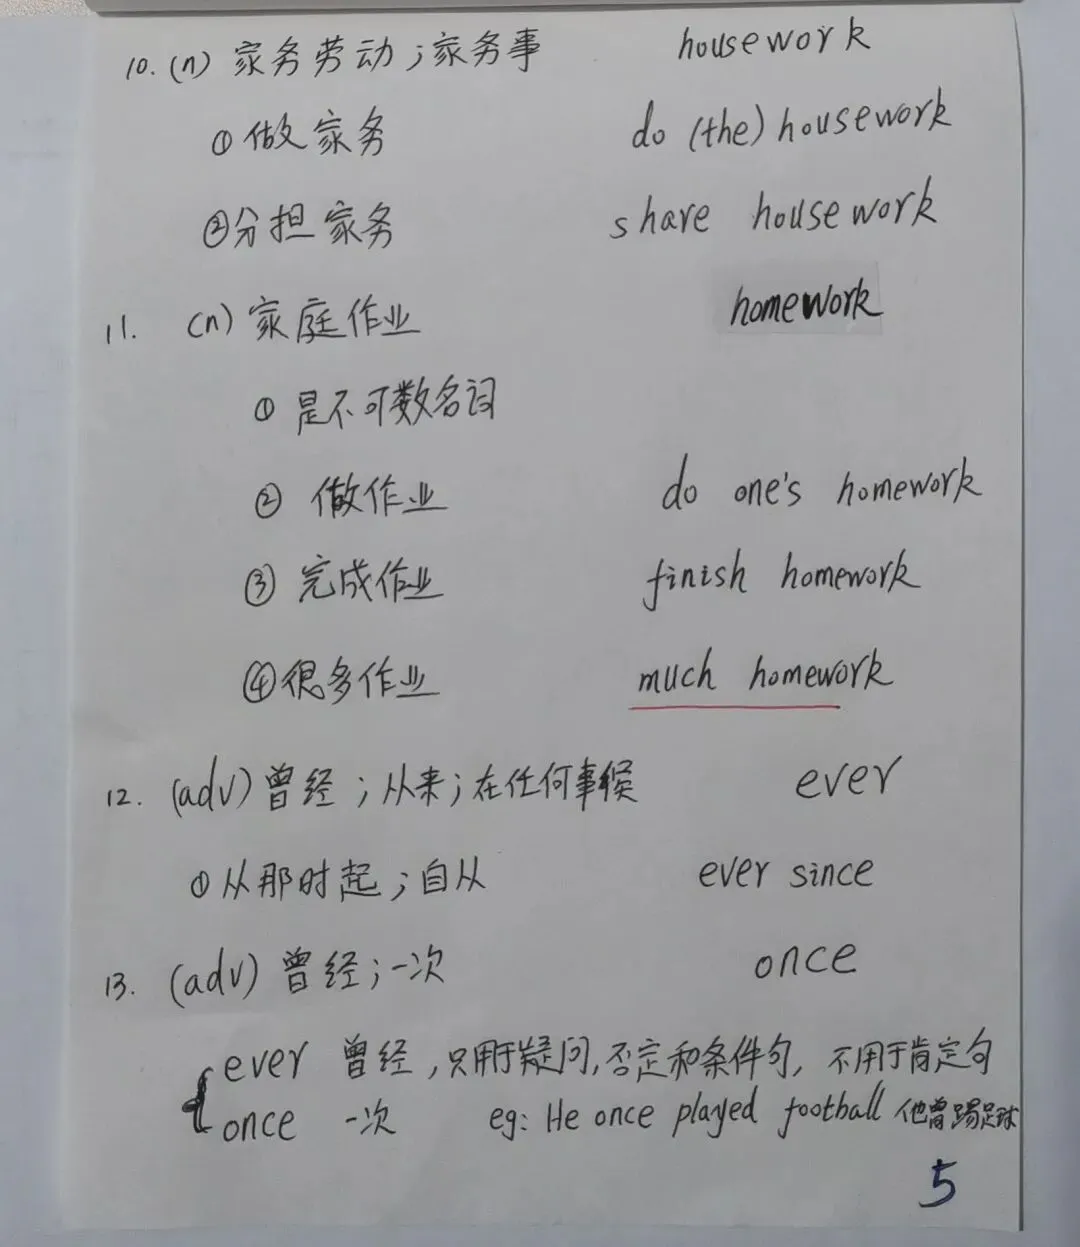 10. (n) 家务劳动；家务事 housework
① 做家务 do (the) housework
② 分担家务 share housework
11. (n) 家庭作业 homework
① 是不可数名词
② 做作业 do one's homework
③ 完成作业 finish homework
④ 很多作业 much homework
12. (adv) 曾经；从来；在任何事候 ever
① 从那时起；自从 ever since
13. (adv) 曾经；一次 once
ever 曾经，只用于疑问，否定和条件句，不用于肯定句
once 一次 eg: He once played football 他曾踢足球
5